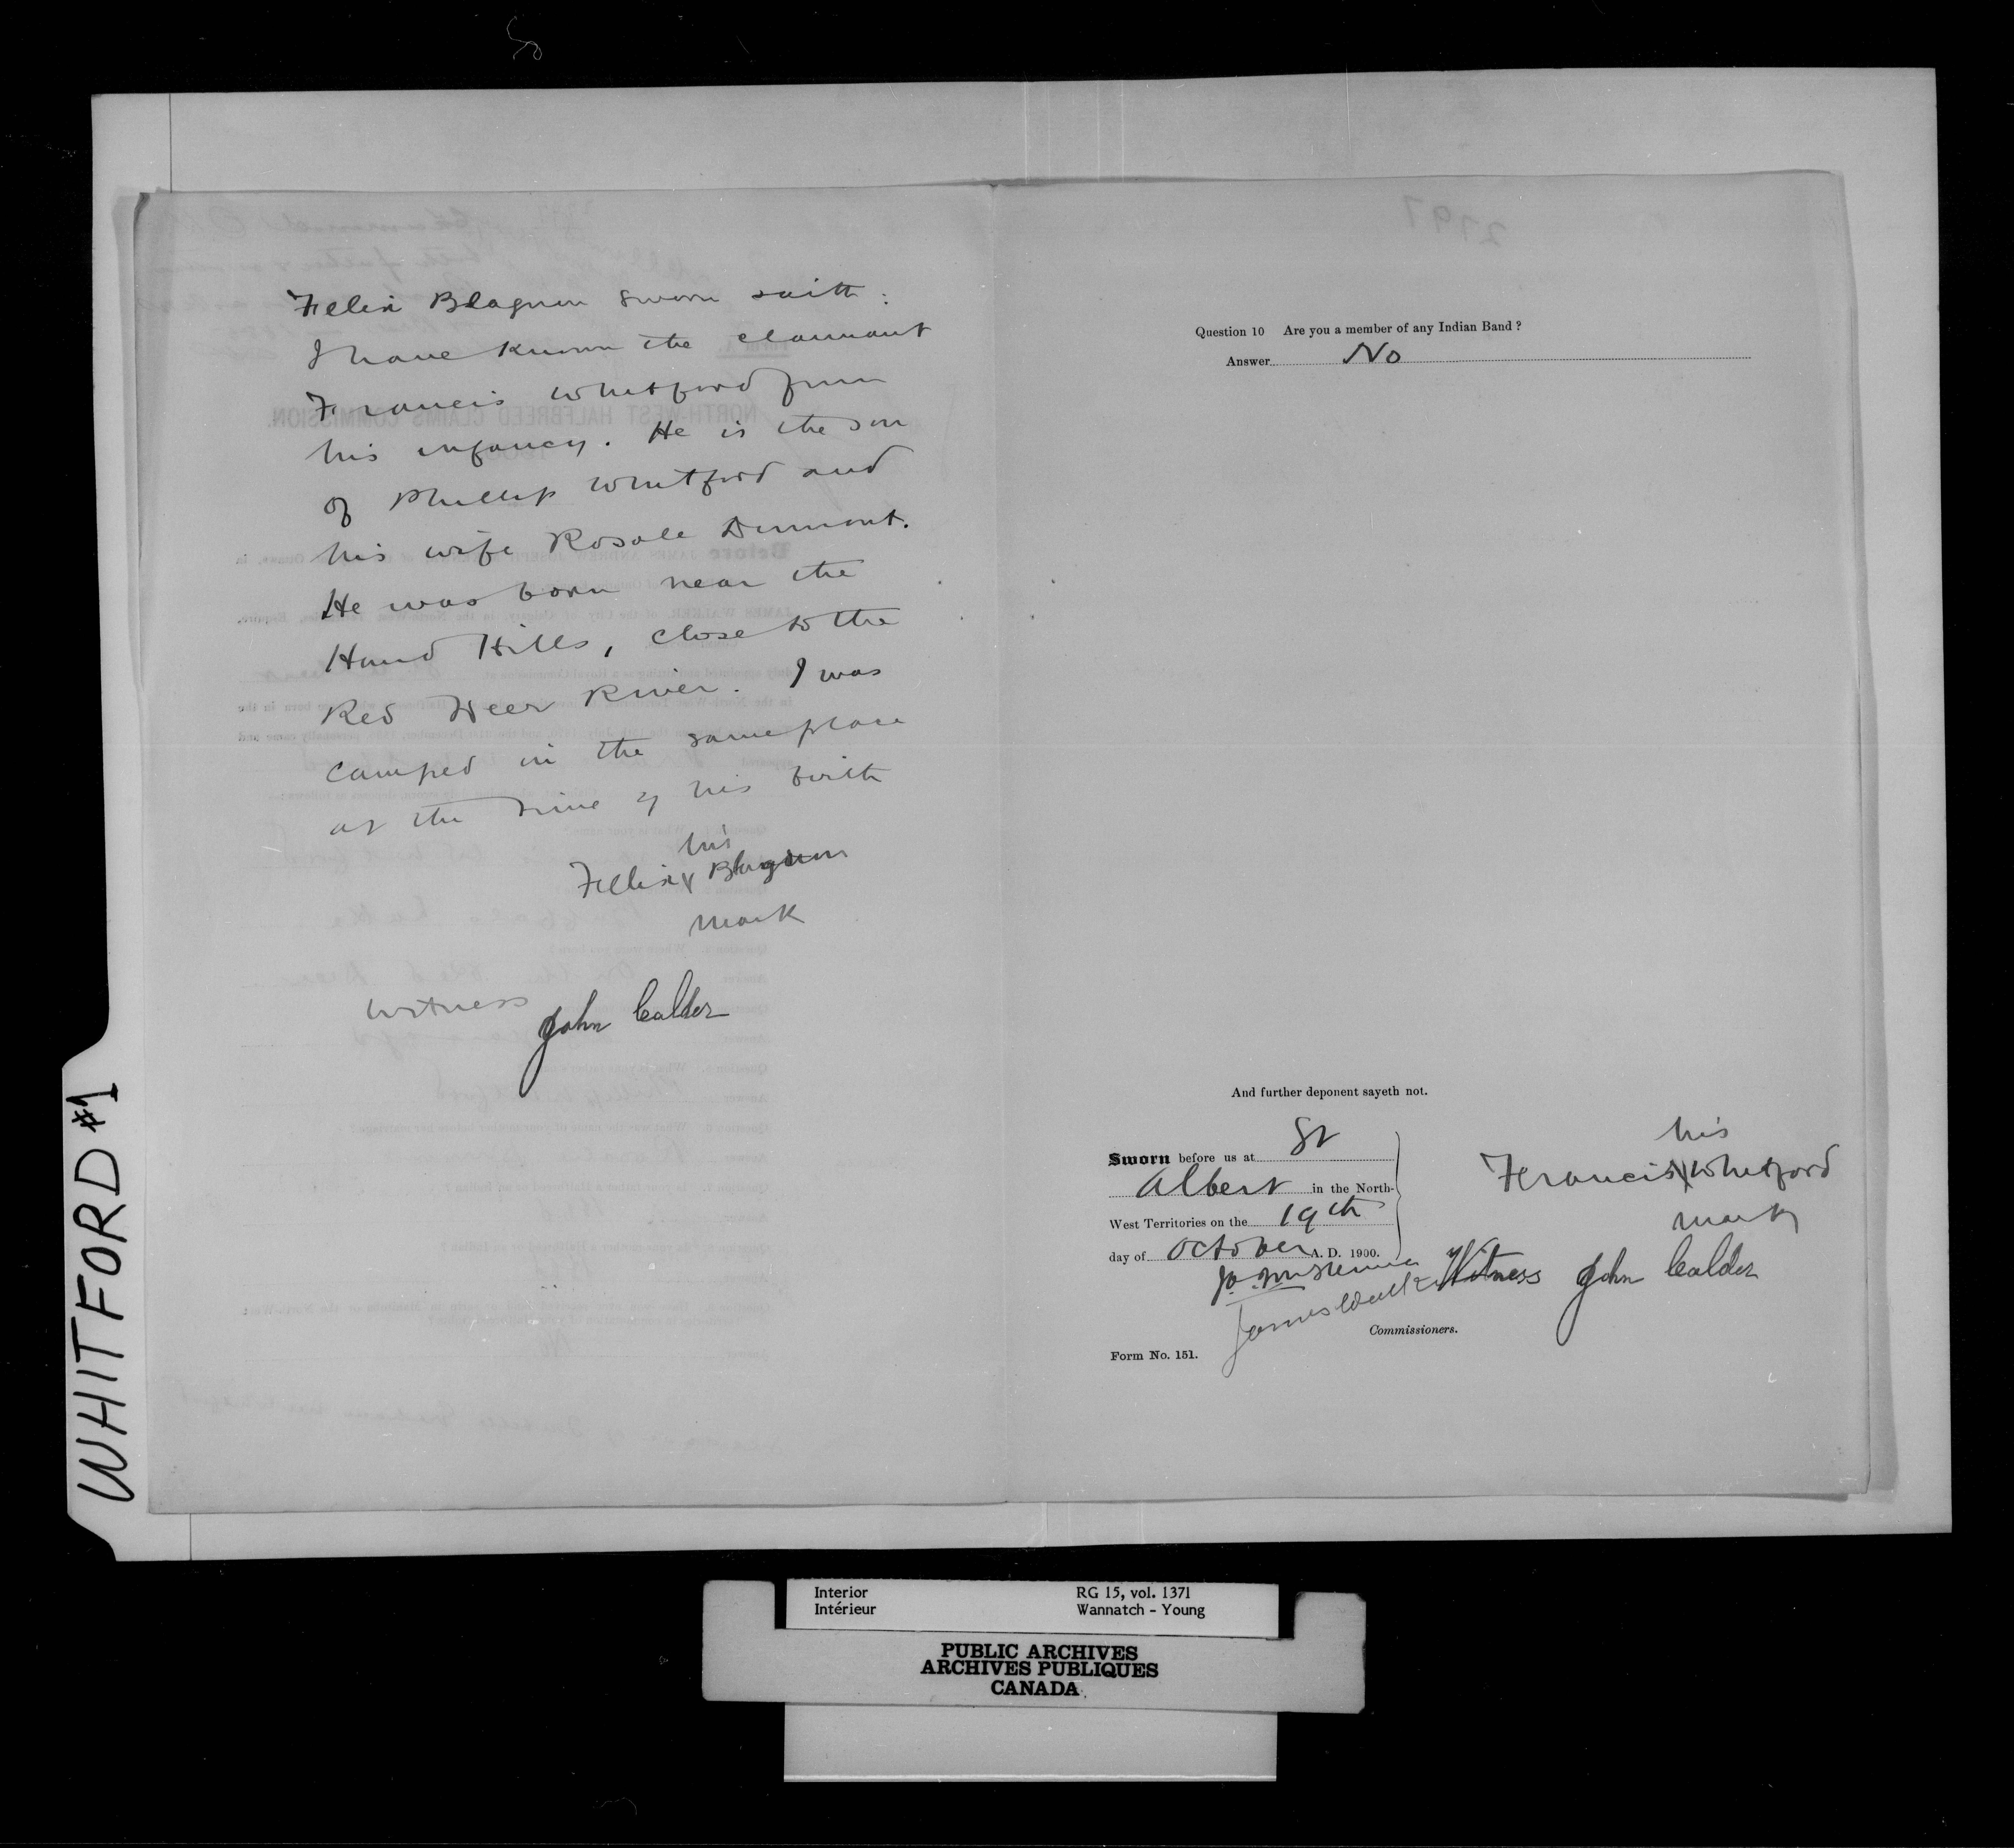 Felix Blagnon sworn saith:
I have known the claimant
Francis Whitford from
his infancy. He is the son
of Phillip Whitford and
his wife Rosale Dumont.
He was born near the
Hand Hills, close to the
Red Deer River. I was
camped in the same place
at the time of his birth
his
Felix X Blagnon
mark
Witness John Calder
WHITFORD #1
2797
Question 10 Are you a member of any Indian Band?
Answer No
And further deponent sayeth not.
Sworn before us at St
Albert in the North-
West Territories on the 19th
day of October A. D. 1900.
his
Francis X Whitford
mark
Witness John Calder
James Walker
Commissioners.
Form No. 151.
Interior RG 15, vol. 1371
Intérieur Wannatch - Young
PUBLIC ARCHIVES
ARCHIVES PUBLIQUES
CANADA